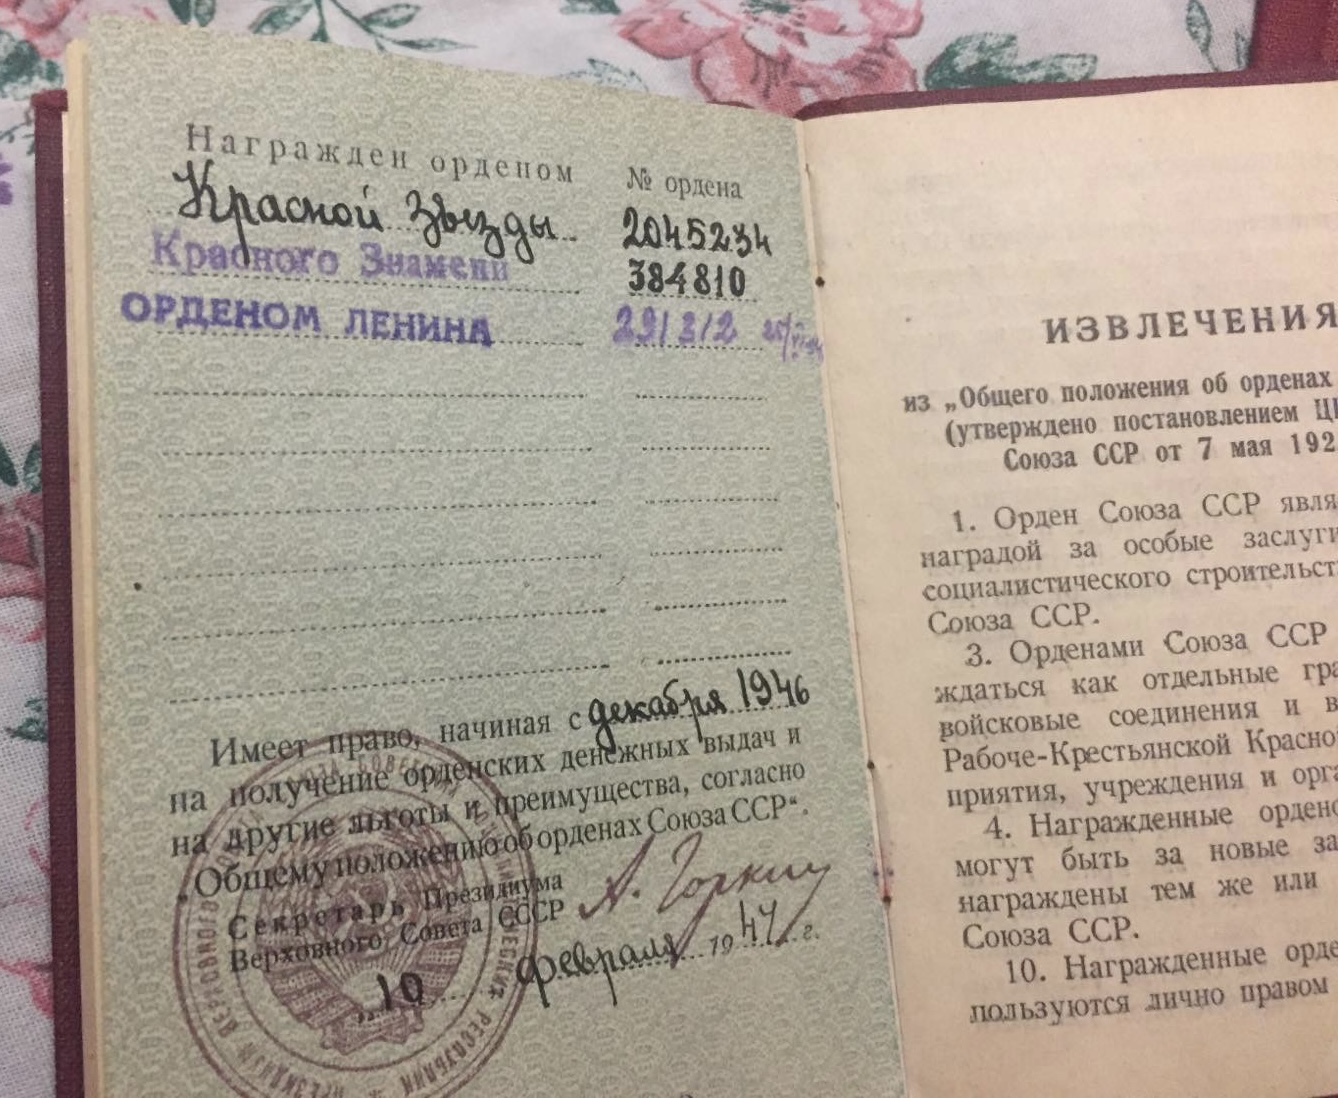 Награжден орденом № ордена
Красной Звезды 2045234
Красного Знамени 384810
ОРДЕНОМ ЛЕНИНА
Имеет право, начиная с декабря 1946
на получение орденских денежных выдач и
на другие льготы и преимущества, согласно
„Общему положению об орденах Союза ССР“.
Секретарь Президиума
Верховного Совета СССР
А. Горкин
„10 февраля 1947 г.
ИЗВЛЕЧЕНИЯ
из „Общего положения об орденах
(утверждено постановлением Ц
Союза ССР от 7 мая 192
1. Орден Союза ССР явля
наградой за особые заслуги
социалистического строительст
Союза ССР.
3. Орденами Союза ССР
ждаться как отдельные гра
войсковые соединения и в
Рабоче-Крестьянской Красно
приятия, учреждения и орга
4. Награжденные ордено
могут быть за новые за
награждены тем же или
Союза ССР.
10. Награжденные орде
пользуются лично правом